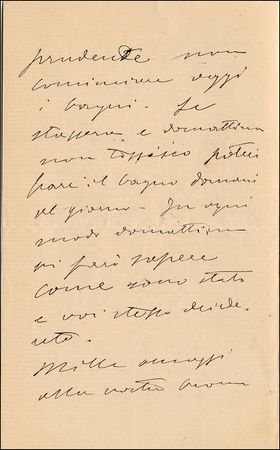 prudente non
cominciare oggi
i bagni. Se
stassera e domattina
non tossisco potrei
fare il bagno domani
al giorno. In ogni
modo domattina
vi farò sapere
come sono stato
e voi stesso decide-
rete.
Mille omaggi
alla vostra buona